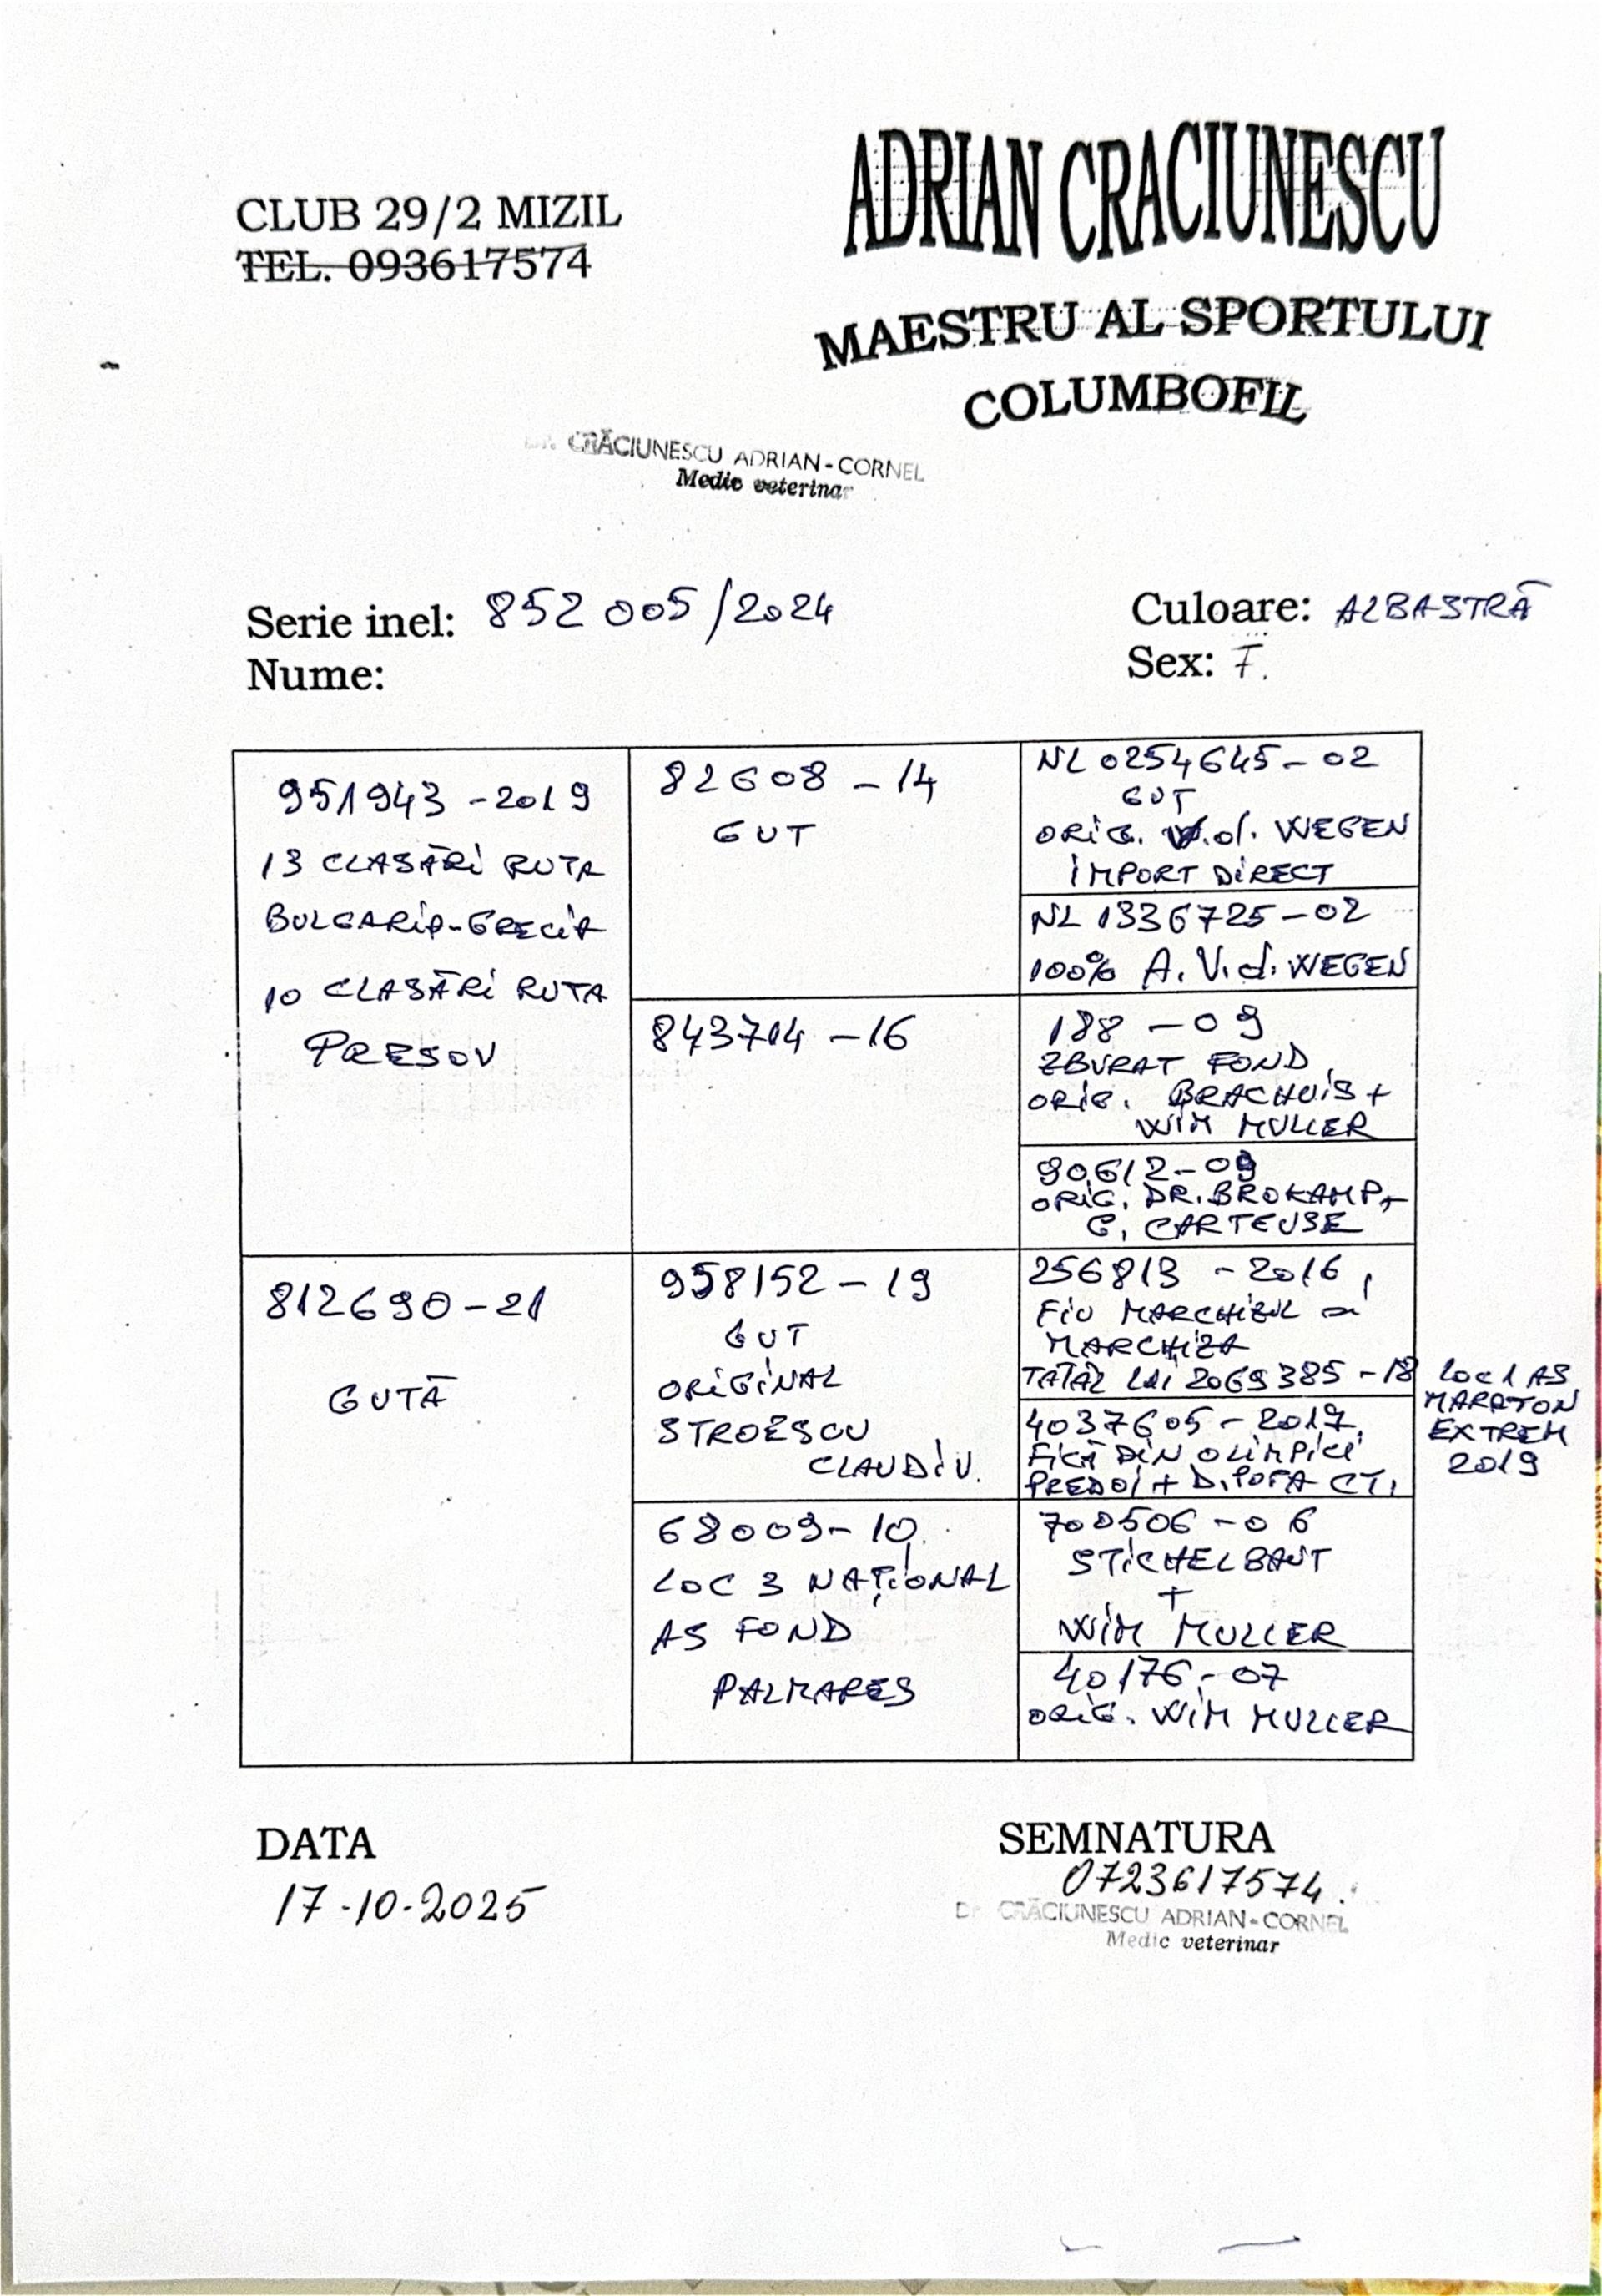 CLUB 29/2 MIZIL
TEL. 093617574
ADRIAN CRACIUNESCU
MAESTRU AL SPORTULUI
COLUMBOFIL
CRĂCIUNESCU ADRIAN-CORNEL
Medic veterinar
Serie inel: 852005/2024
Culoare: ALBASTRĂ
Nume:
Sex: F.
951943-2019
13 CLASĂRI RUTA
BULGARIA-GRECIA
10 CLASĂRI RUTA
PRESOV
82608-14
GUT
NL 0254645-02
GUT
ORIG. V.d. WEGEN
IMPORT DIRECT
NL 1336725-02
100% A. V.d. WEGEN
843714-16
188-09
ZBURAT FOND,
ORIG. BRACHUIS +
WIM MULLER
90612-09
ORIG. DR. BROKAMP +
G. CARTEUSE
812690-21
GUTĂ
958152-19
GUT
ORIGINAL
STROESCU
CLAUDIU.
256813-2016,
FIU MARCHIZUL și
MARCHIZA
TATĂL LUI 2069385-18 LOC 1 AS
MARATON
EXTREM
2019
4037605-2017,
FIICĂ DIN OLIMPICI
PREDOI + D. POPA CT.
68009-10
LOC 3 NAȚIONAL
AS FOND
PALMARES
700506-06
STICHELBAUT
+
WIM MULLER
40176-07
ORIG. WIM MULLER
DATA
17-10-2025
SEMNATURA
0723617574.
Dr CRĂCIUNESCU ADRIAN-CORNEL
Medic veterinar